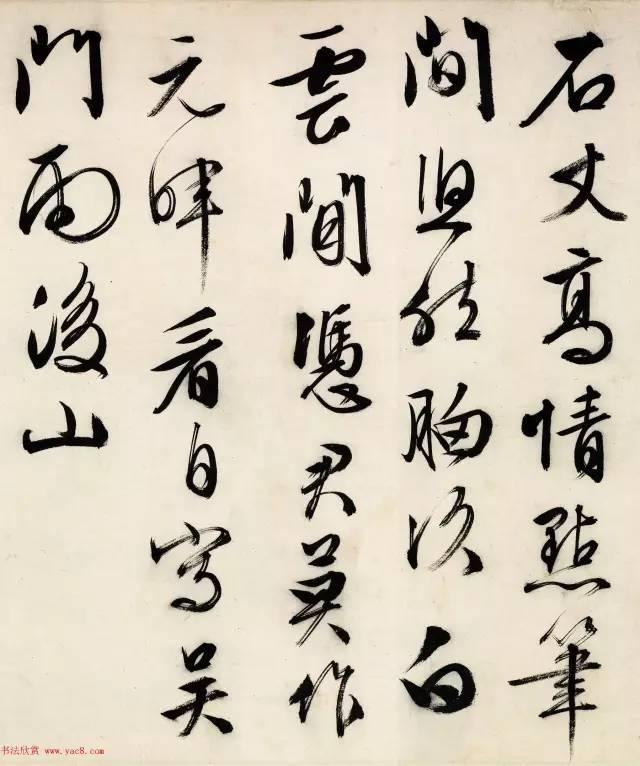 石丈高情點筆
間坦然胸次白
雲閒憑君莫作
元暉看自寫吳
門雨後山
书法欣赏 www.yac8.com